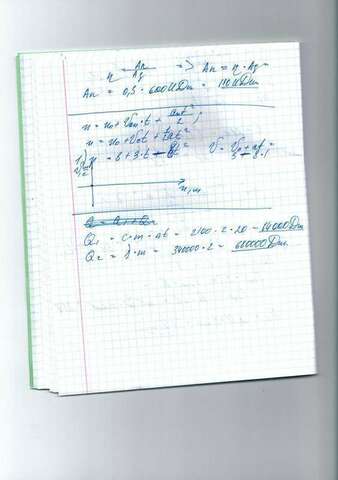 η = Aп/Aз => Aп = η · Aз =
Aп = 0,3 · 600 кДж = 180 кДж
x = x₀ + V₀ₓ·t + aₓt²/2 ;
x = x₀ + V₀t + at²
- 8 + 3 · t - V = V₀ + at =
x, м
Q = Q₁ + Q₂
Q₁ = c · m · Δt = 2100 · 2 · 20 = 84000 Дж
Q₂ = λ · m = 340000 · 2 = 680000 Дж